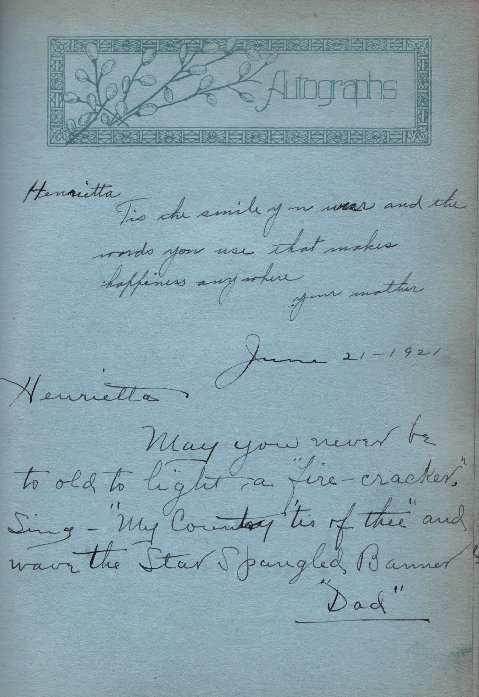 Autographs
Henrietta
'Tis the smile you wear and the
words you use that makes
happiness anywhere
your mother
June 21-1921
Henrietta.
May you never be
to old to light a "fire-cracker,"
Sing - "My Country 'tis of thee" and
wave the Star Spangled Banner"
"Dad"